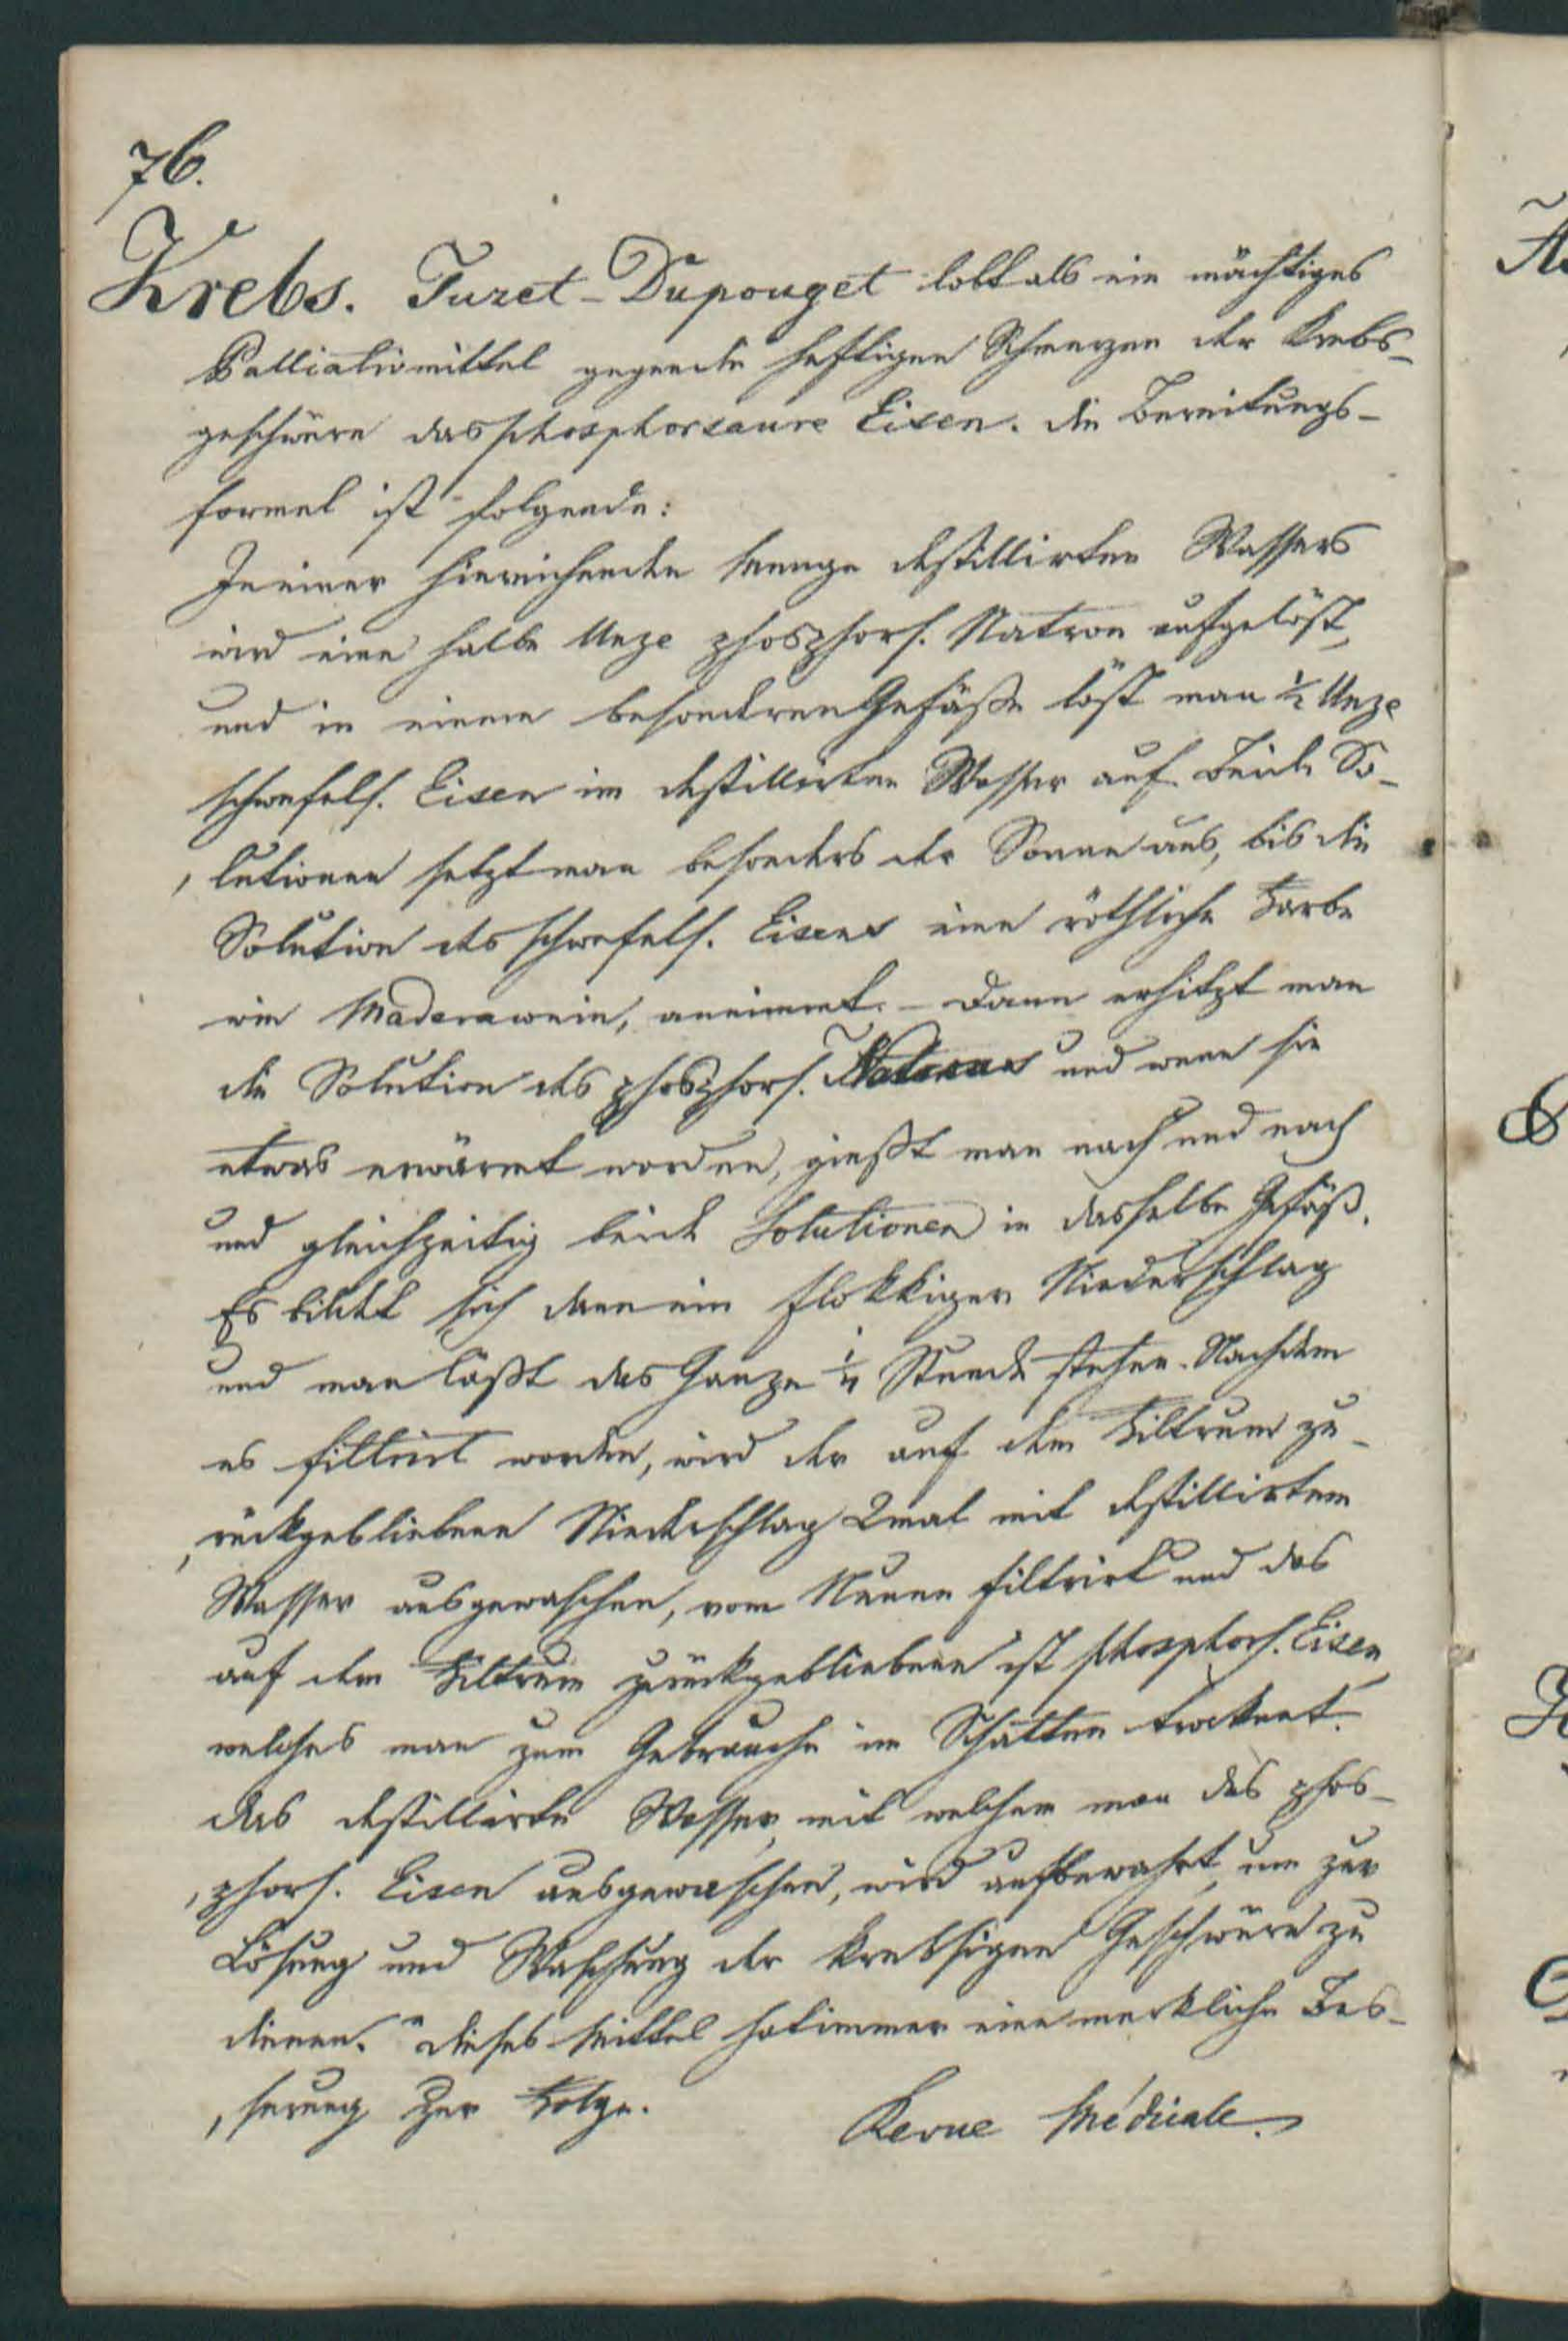 76.
Krebs. Turet-Dupouget lobt als ein mächtiges
Palliativmittel gegen die heftigen Schmerzen der Krebs-
geschwüre das phosphorsaure Eisen. die Bereitungs-
formel ist folgende:
In einer hinreichenden Menge destillirten Wassers
wird eine halbe Unze phosphors. Natron aufgelöst,
und in einem besonderen Gefäße löst man ½ Unze
schwefels. Eisen im destillirten Wasser auf. Beide So-
lutionen setzt man besonders der Sonne aus, bis die
Solution des schwefels. Eisens eine röthliche Farbe
wie Maderawein, annimmt. – Dann erhitzt man
die Solution des phosphors. Natrons und wenn sie
etwas erwärmt worden, gießt man nach und nach
und gleichzeitig beide Solutionen in dasselbe Gefäß.
Es bildet sich dann ein flokkiger Niederschlag
und man läßt das Ganze ¼ Stunde stehen. Nachdem
es filtrirt worden, wird der auf dem Filtrum zu-
rückgebliebene Niederschlag 2mal mit destillirtem
Wasser ausgewaschen, vom Neuen filtrirt und das
auf dem Filtrum zurückgebliebene ist phosphors. Eisen,
welches man zum Gebrauche im Schatten trocknet.
das destillirte Wasser, mit welchem man das phos-
phors. Eisen ausgewaschen, wird aufbewahrt, um zur
Lösung und Waschung der krebsigen Geschwüre zu
dienen." dieses Mittel hat immer eine merkliche Bes-
serung zur Folge.
Revue Médicale.